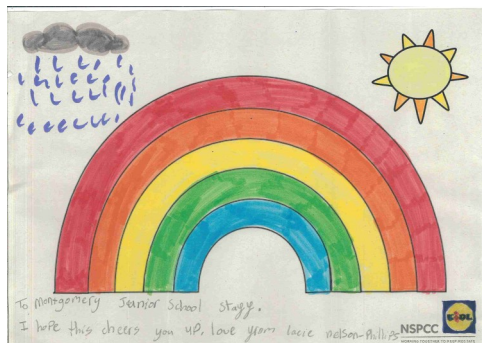 To Montgomery Jeanior School Stagg.
I hope this cheers you up, love grom lacie nelson-Phillips
NSPCC
LIDL
WORKING TOGETHER TO KEEP KIDS SAFE